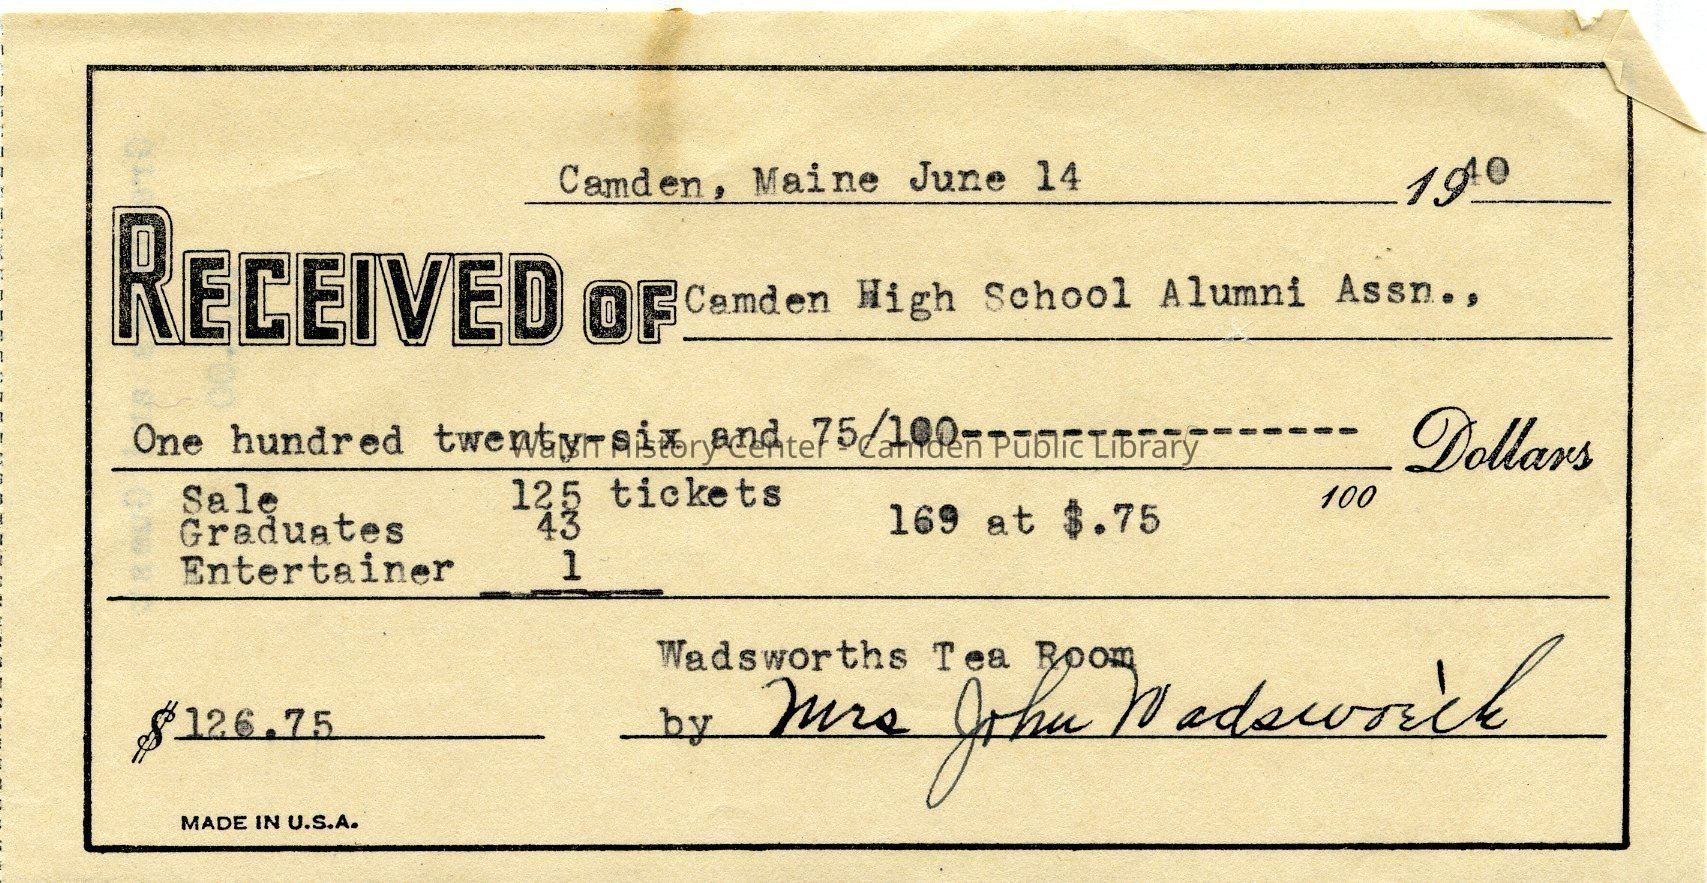 Camden, Maine June 14 1940
RECEIVED OF Camden High School Alumni Assn.,
One hundred twenty-six and 75/100----------------- Dollars
Walsh History Center - Camden Public Library
100
Sale 125 tickets
169 at $.75
Graduates 43
Entertainer 1
Wadsworths Tea Room
$126.75 by Mrs John Wadsworth
MADE IN U.S.A.